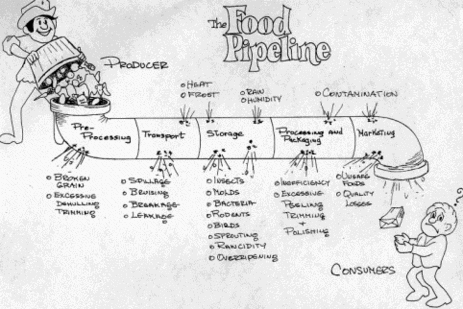 The Food
Pipeline
PRODUCER
o HEAT
o FROST
o RAIN
o HUMIDITY
o CONTAMINATION
PRE-
PROCESSING
TRANSPORT
STORAGE
PROCESSING AND
PACKAGING
MARKETING
o BROKEN
GRAIN
o EXCESSIVE
DEHULLING
TRIMMING
o SPILLAGE
o BRUISING
o BREAKAGE
o LEAKAGE
o INSECTS
o MOLDS
o BACTERIA
o RODENTS
o BIRDS
o SPROUTING
o RANCIDITY
o OVERRIPENING
o INEFFICIENCY
o EXCESSIVE
PEELING
TRIMMING
+
POLISHING
o UNSAFE
FOODS
o QUALITY
LOSSES
?
CONSUMERS